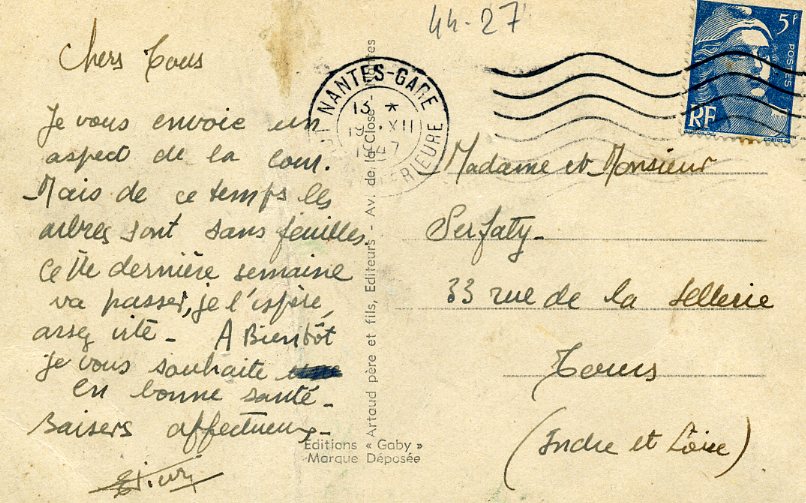 44-27
5F
POSTES
RF
NANTES-GARE
13 *
19 XII
1947
INFERIEURE
Chers Tous
Je vous envoie un
aspect de la cour.
Mais de ce temps les
arbres sont sans feuilles.
Cette dernière semaine
va passer, je l'espère,
assez vite - A Bientôt
je vous souhaite
en bonne santé -
Baisers affectueux -
Artaud père et fils, Editeurs - Av. de la Close - Nantes
Editions « Gaby »
Marque Déposée
Madame et Monsieur
Serfaty -
33 rue de la Sellerie
Tours
(Indre et Loire)